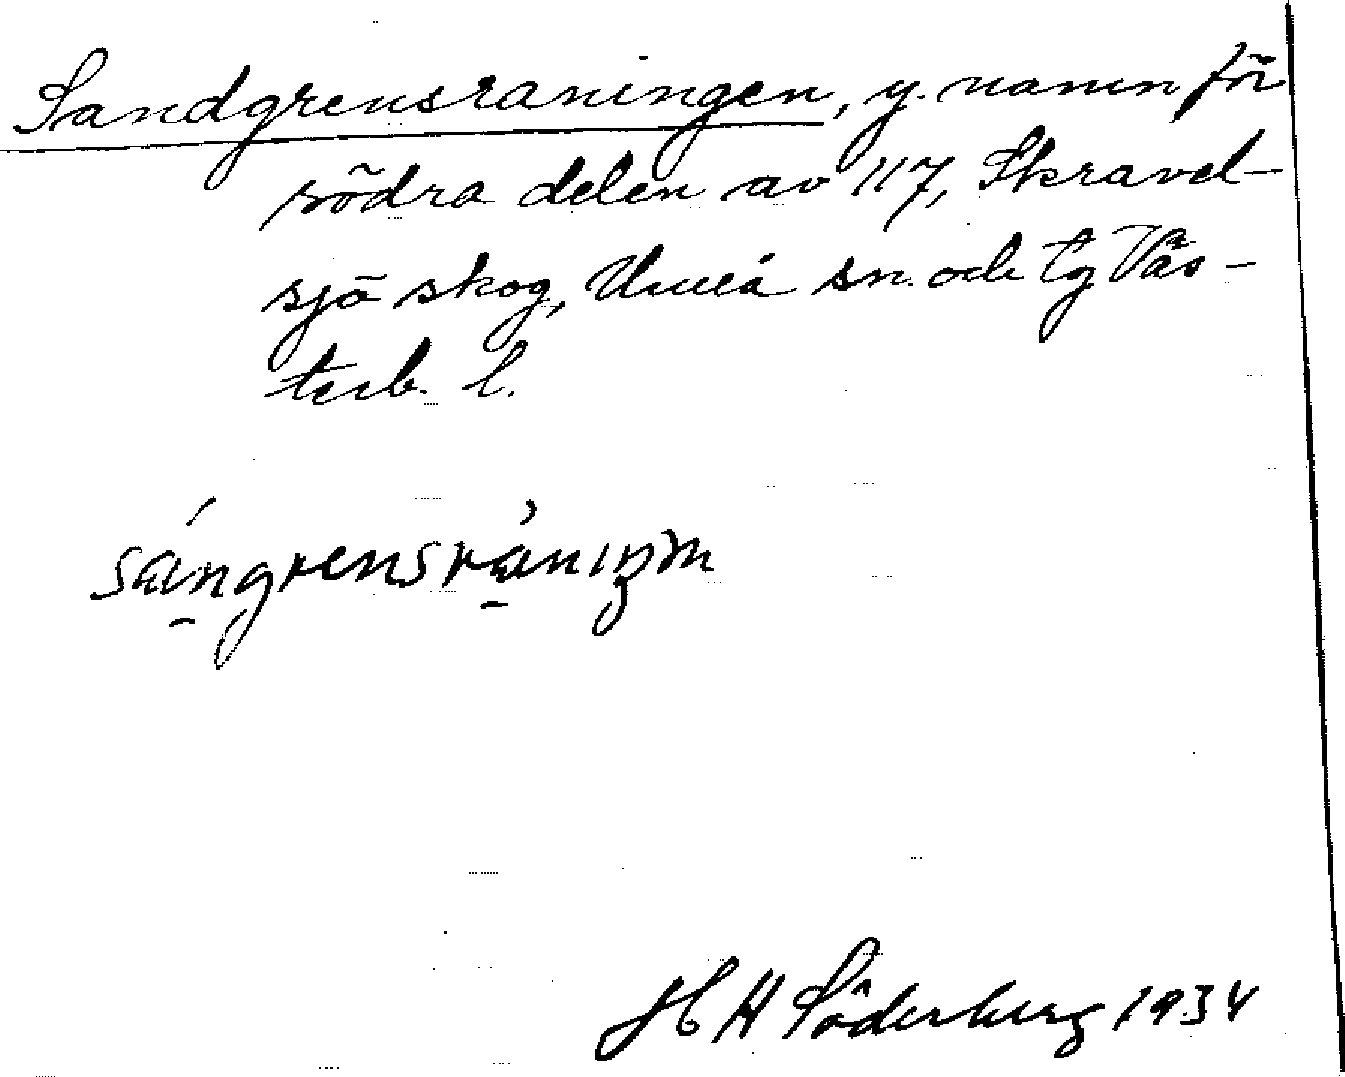 Sandgrensraningen, y. namn för
södra delen av 117, Skravel-
sjö skog, Umeå sn. och tg Väs-
terb. l.
H H Söderberg 1934